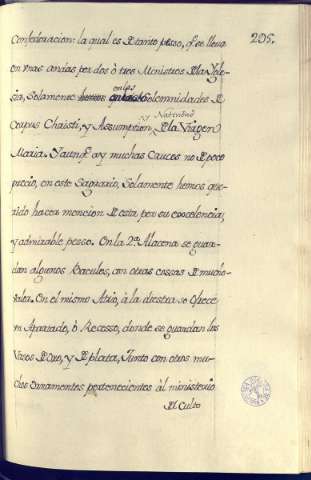 205.
Confederacion: la qual es D tanto pesso, qe. se lleva
en unas andas por dos ò tres Ministros D la Ygle-
sia, Solamente en las Solemnidades D
Corpus Christi, y Assumpcion, y Natividad D la Virgen
Maria. Y aunqe. ay muchas Cruces no D poco
precio, en este Sagrario, Solamente hemos que-
rido hacer mencion D esta por su excelencia,
y admirable pesso. En la 2ª. Alacena se guar-
dan algunos Baculos, con otras cossas D mucho
valor. En el mismo Atrio, à la diestra se ofrece
un Apartado, ò Recesso, donde se guardan los
Vasos D Oro, y D plata, Junto con otros mu-
chos Ornamentos pertenecientes àl ministerio
Dl Culto